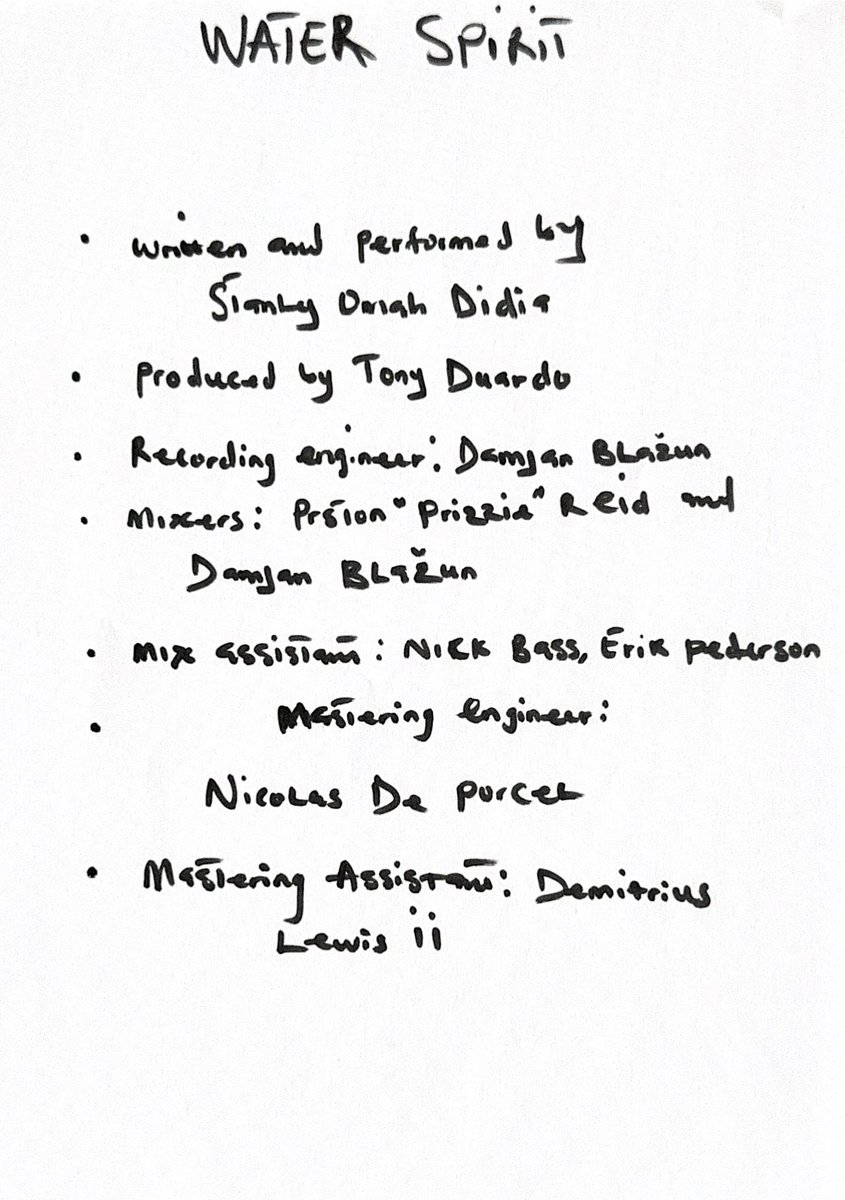 WATER SPIRIT
• written and performed by
Stanly Omah Didia
• produced by Tony Duardo
• Recording engineer: Damjan BLažun
• Mixers: "Prizzie" Reid and
Damjan BLažun
• Mix assistant: Nick Bass, Erik pederson
• Mastering engineer:
Nicolas De porcel
• Mastering Assistant: Demitrius
Lewis ii